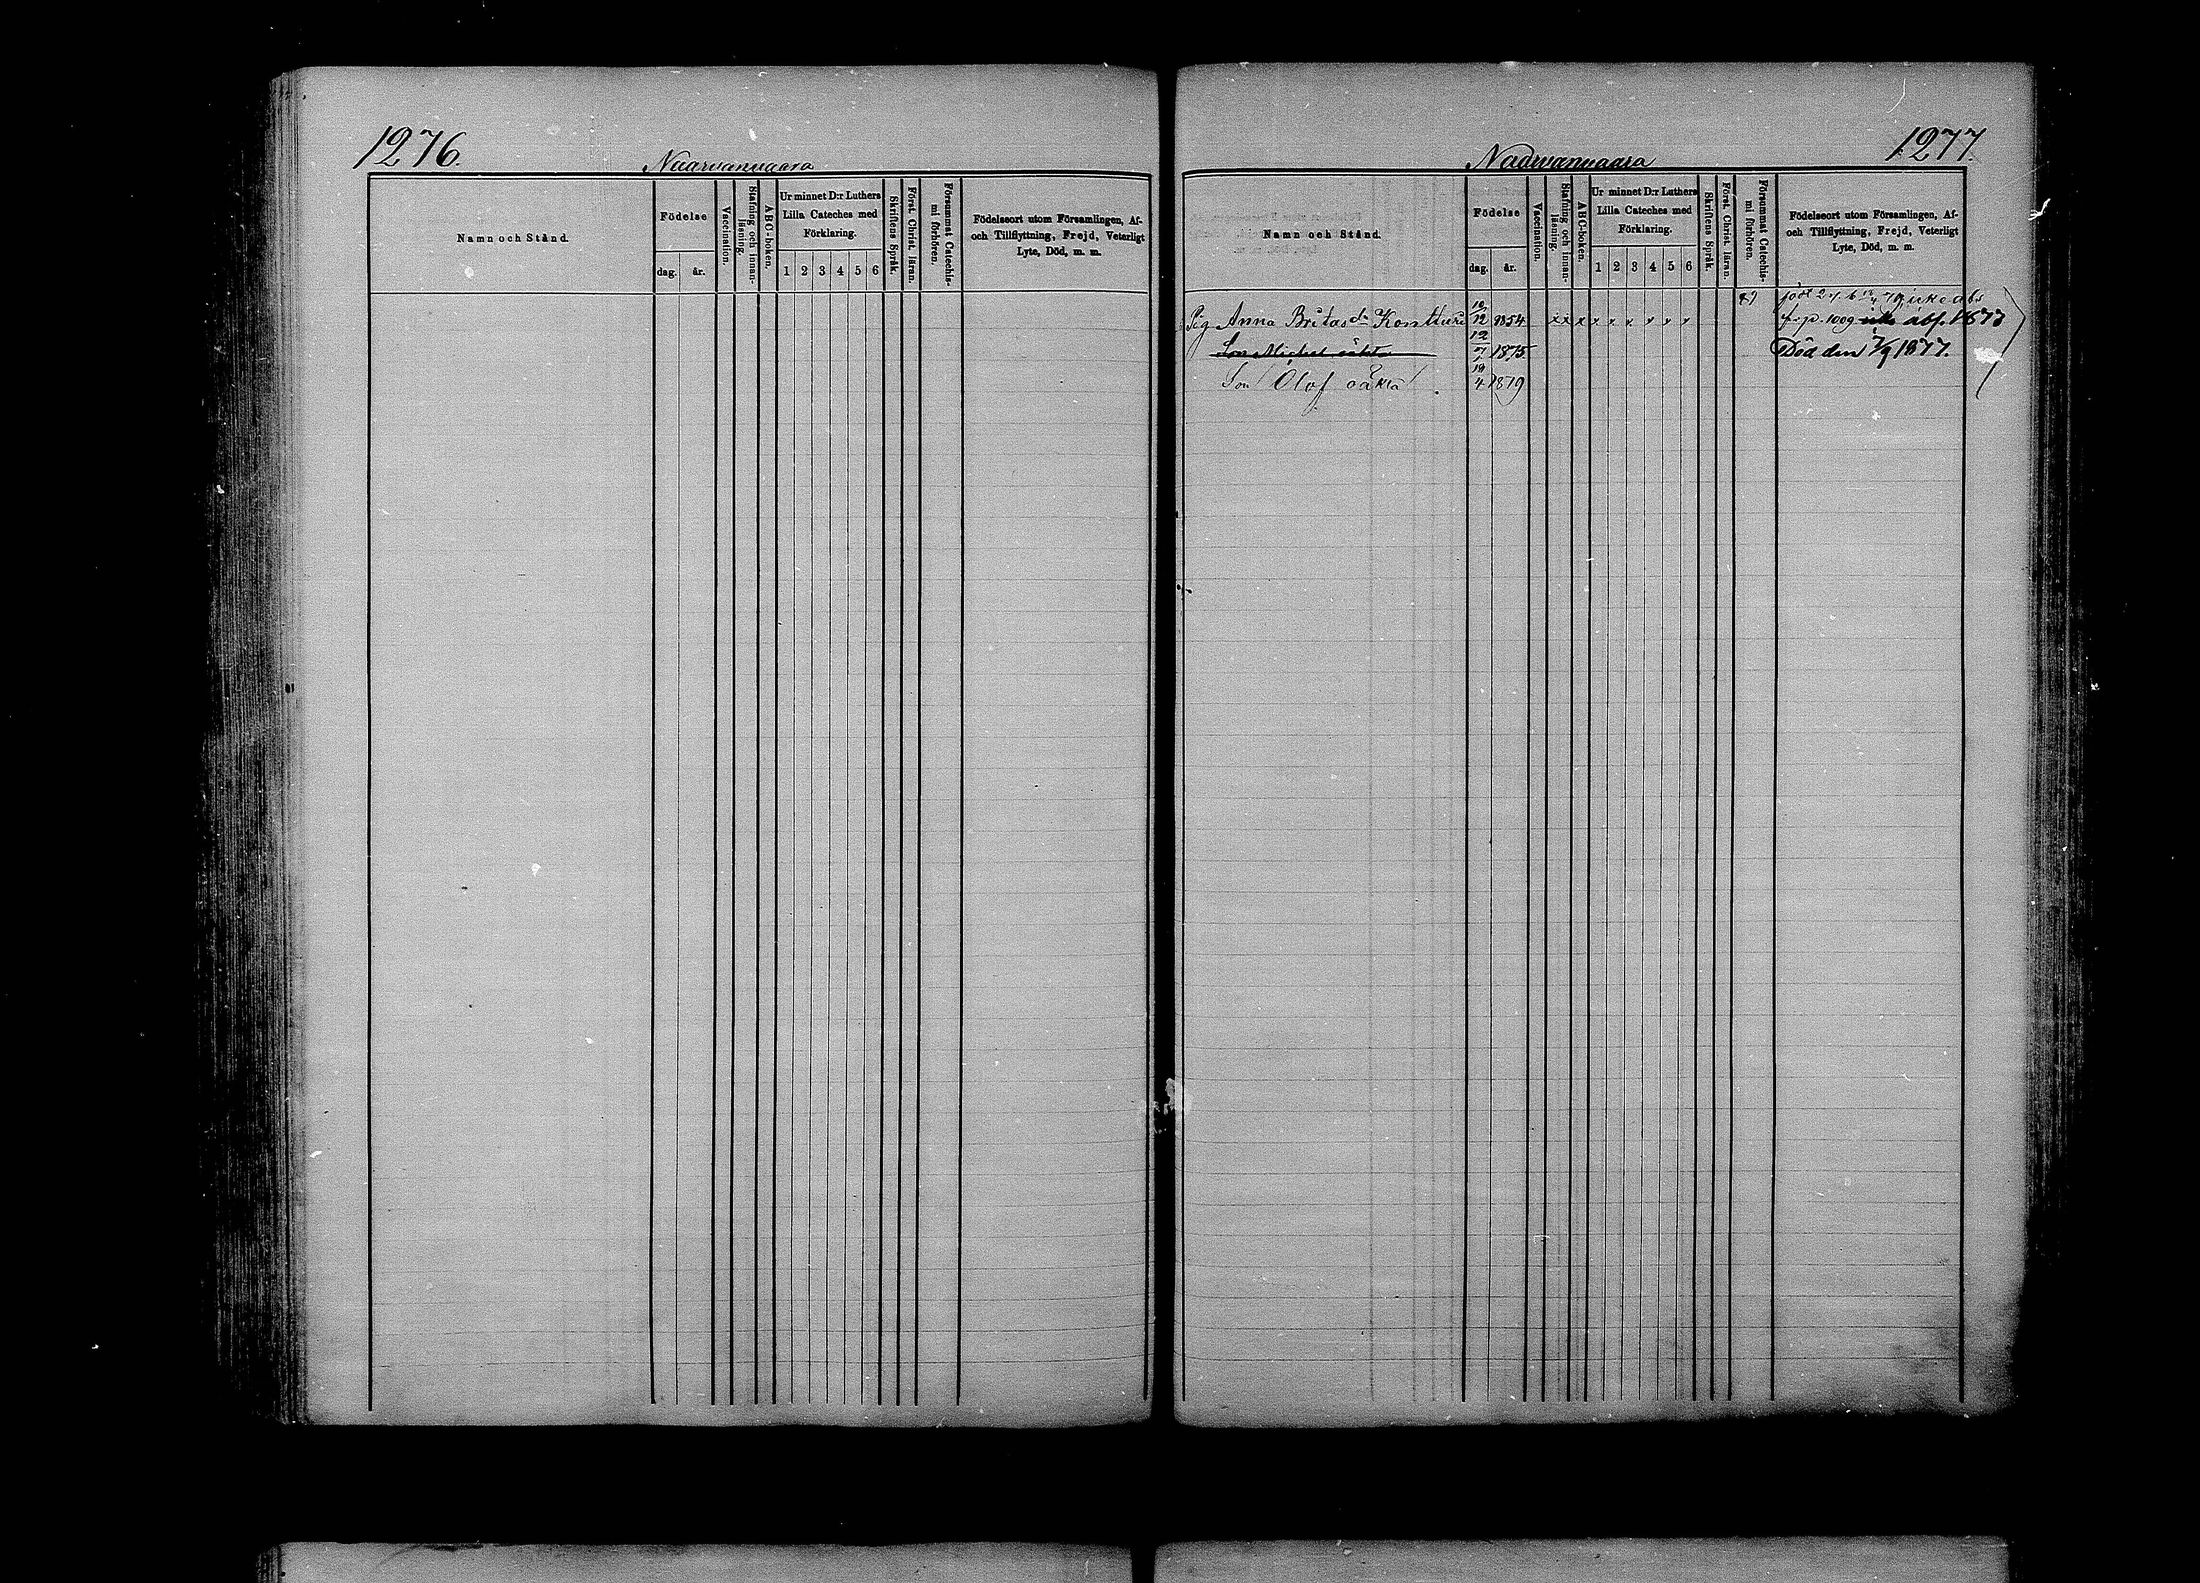 1276.
Naarvanvaara
Namn och Stånd.
Födelse
dag. år.
Vaccination.
Stafning och innanläsning.
ABC-boken.
Ur minnet D:r Luthers
Lilla Cateches med
Förklaring.
1 2 3 4 5 6
Skriftens Språk.
Först. Christ. läran.
Försummat Catechismi förhören.
Födelseort utom Församlingen, Af-
och Tillflyttning, Frejd, Veterligt
Lyte, Död, m. m.
1277.
Naarvanvaara
Namn och Stånd.
Födelse
dag. år.
Vaccination.
Stafning och innanläsning.
ABC-boken.
Ur minnet D:r Luthers
Lilla Cateches med
Förklaring.
1 2 3 4 5 6
Skriftens Språk.
Först. Christ. läran.
Försummat Catechismi förhören.
Födelseort utom Församlingen, Af-
och Tillflyttning, Frejd, Veterligt
Lyte, Död, m. m.
Pig Anna Britas dr Kontturi 10/12 1854 x x x x x x v v v fr. p. 1009 abs. 1877
Son Michel oäkta 12/7 1875 Död den 7/9 1877.
Son Olof oäkta 18/4 1879